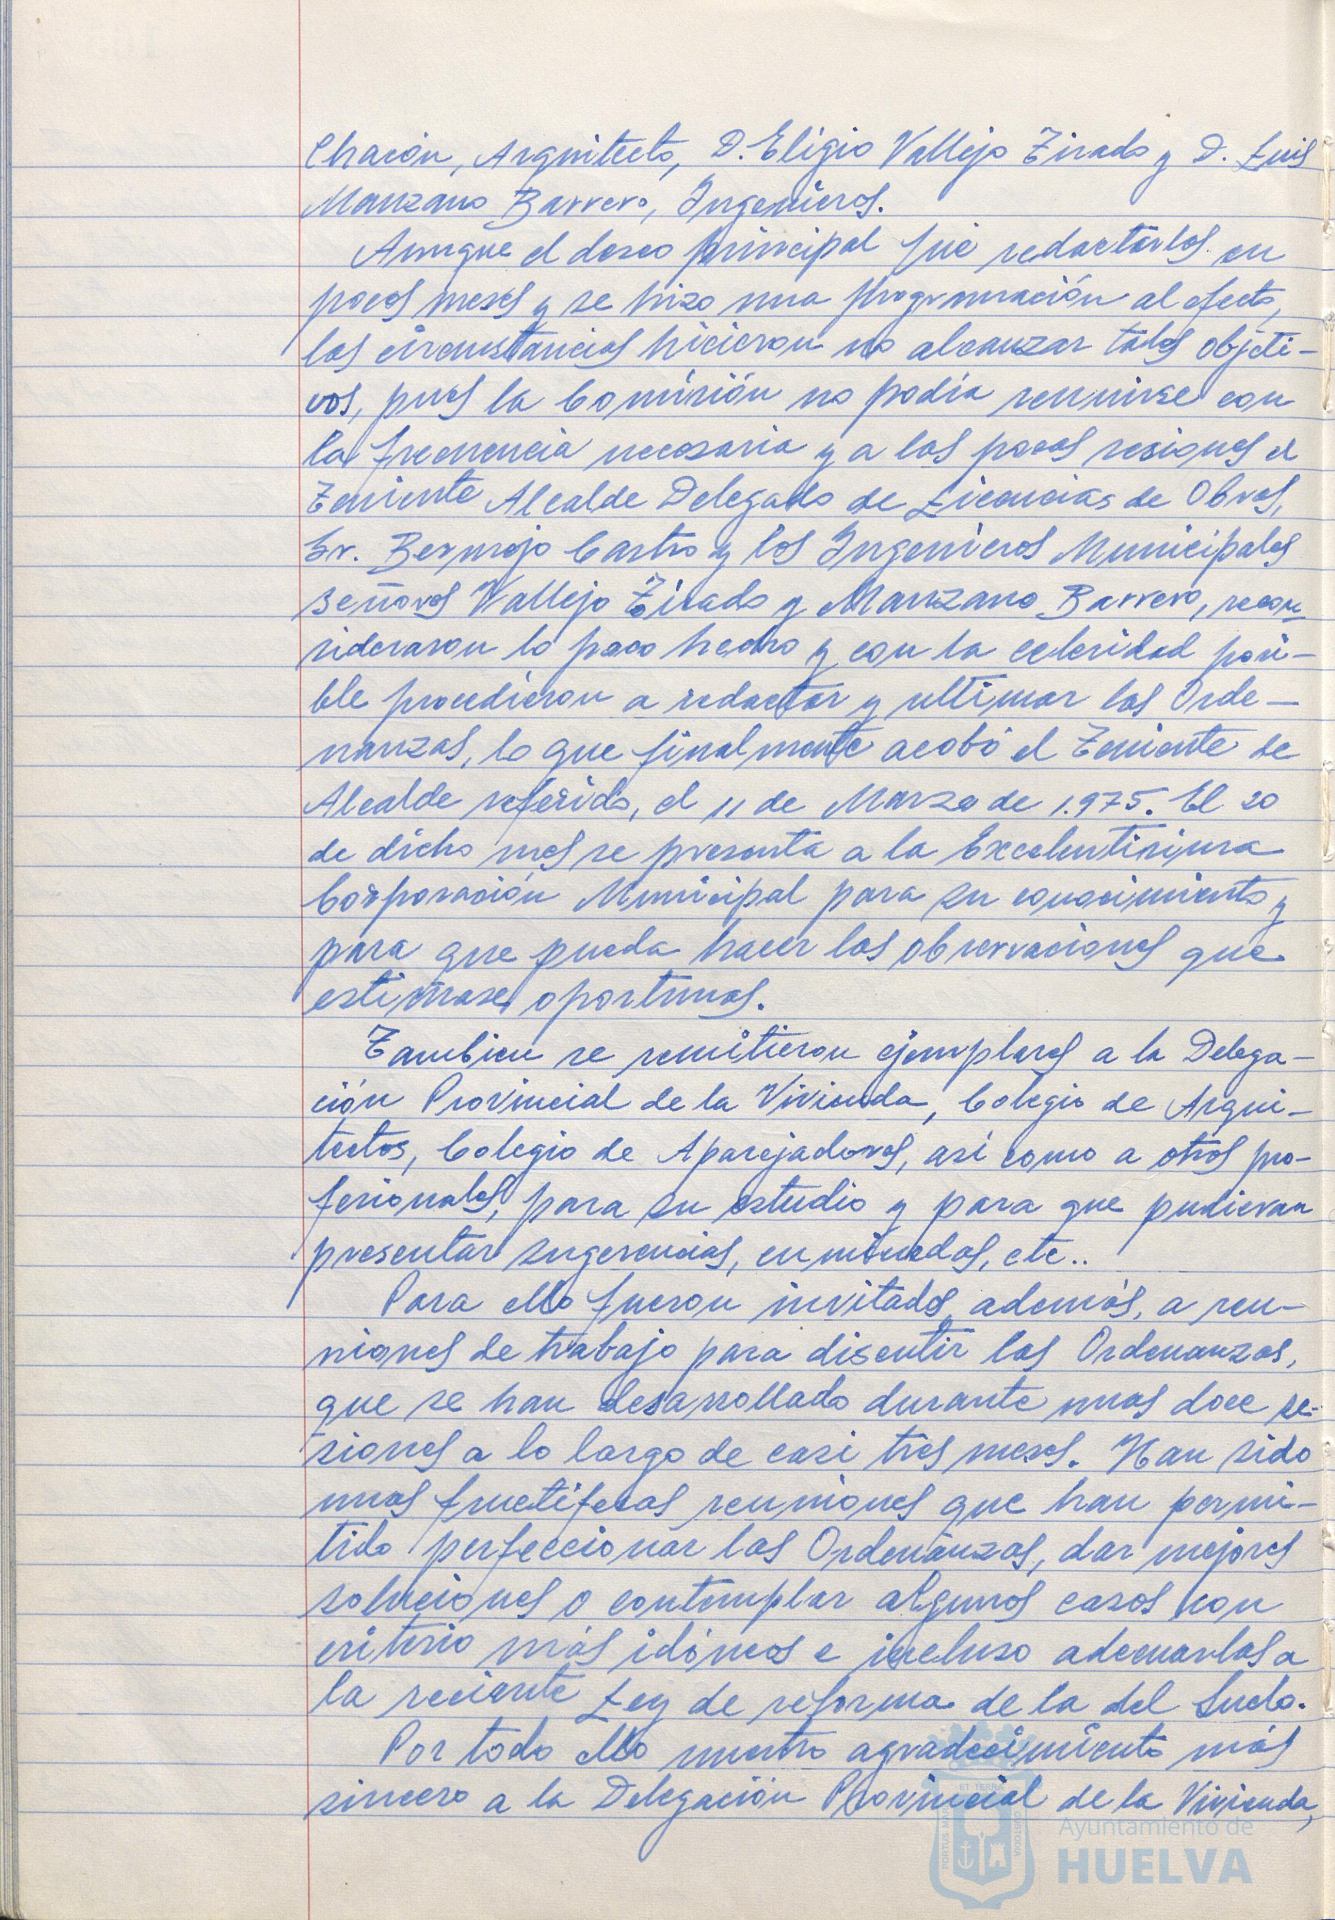 Chacón, Arquitecto, D. Eligio Vallejo Tirado y D. Luis
Manzano Barrero, Ingenieros.
Aunque el deseo principal fué redactarlas en
pocos meses y se hizo una programación al efecto,
las circunstancias hicieron no alcanzar tales objeti-
vos, pues la Comisión no podía reunirse con
la frecuencia necesaria y a las pocas sesiones el
Teniente Alcalde Delegado de Licencias de Obras,
Sr. Bermejo Castro y los Ingenieros Municipales
señores Vallejo Tirado y Manzano Barrero, recon-
sideraron lo poco hecho y con la celeridad posi-
ble procedieron a redactar y ultimar las Orde-
nanzas, lo que finalmente acabó el Teniente de
Alcalde referido, el 11 de Marzo de 1.975. El 20
de dicho mes se presenta a la Excelentísima
Corporación Municipal para su conocimiento y
para que pueda hacer las observaciones que
estimase oportunas.
Tambien se remitieron ejemplares a la Delega-
ción Provincial de la Vivienda, Colegio de Arqui-
tectos, Colegio de Aparejadores, así como a otros pro-
fesionales, para su estudio y para que pudieran
presentar sugerencias, enmiendas, etc..
Para ello fueron invitados, además, a reu-
niones de trabajo para discutir las Ordenanzas,
que se han desarrollado durante unas doce se-
siones a lo largo de casi tres meses. Han sido
unas fructíferas reuniones que han permi-
tido perfeccionar las Ordenanzas, dar mejores
soluciones o contemplar algunos casos con
criterio más idóneos e incluso adecuarlas a
la reciente Ley de reforma de la del Suelo.
Por todo ello nuestro agradecimiento más
sincero a la Delegación Provincial de la Vivienda,
Ayuntamiento de
HUELVA